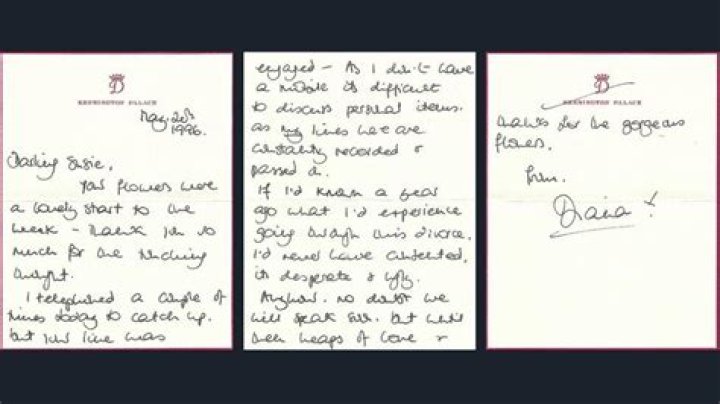 D
KENSINGTON PALACE
May. 20th
1996.
Darling Susie,
Your flowers were
a lovely start to the
week - Thank You so
much for the touching
thought.
I telephoned a couple of
times today to catch up.
but your line was
engaged - As I don't have
a mobile it's difficult
to discuss personal items.
as my lines here are
constantly recorded &
passed on.
If I'd known a year
ago what I'd experience
going through this divorce,
I'd never have consented,
it's desperate & ugly.
Anyhow. no doubt we
will speak soon. but until
then heaps of love &
D
KENSINGTON PALACE
thanks for the gorgeous
flowers.
from.
Diana x